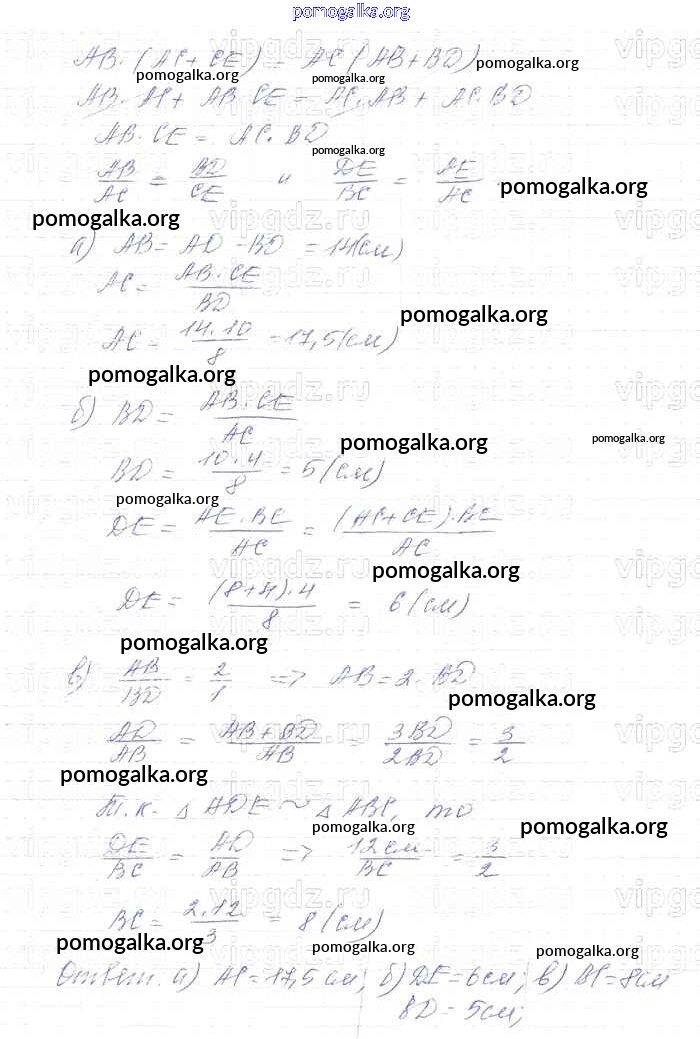 pomogalka.org
AB·(AC + CE) = AC(AB + BD) pomogalka.org
pomogalka.org pomogalka.org
AB·AC + AB·CE = AC·AB + AC·BD
AB·CE = AC·BD
pomogalka.org
AB/AC = BD/CE и DE/BC = AE/AC pomogalka.org
pomogalka.org
а) AB = AD - BD = 14(см)
AC = AB·CE/BD
pomogalka.org
AC = 14·10/8 = 17,5(см)
pomogalka.org
б) BD = AB·CE/AC
pomogalka.org pomogalka.org
BD = 10·4/8 = 5(см)
pomogalka.org
DE = AE·BC/AC = (AC+CE)·BC/AC
pomogalka.org
DE = (8+4)·4/8 = 6(см)
pomogalka.org
в) AB/BD = 2/1 => AB = 2·BD
pomogalka.org
AD/AB = AB+BD/AB = 3BD/2BD = 3/2
pomogalka.org pomogalka.org
Т.к. △ADE ~ △ABC, то
pomogalka.org pomogalka.org
DE/BC = AD/AB => 12см/BC = 3/2
BC = 2·12/3 = 8(см)
pomogalka.org pomogalka.org pomogalka.org
Ответ. а) AC = 17,5см; б) DE = 6см; в) BC = 8см
BD = 5см;
vipgdz.ru